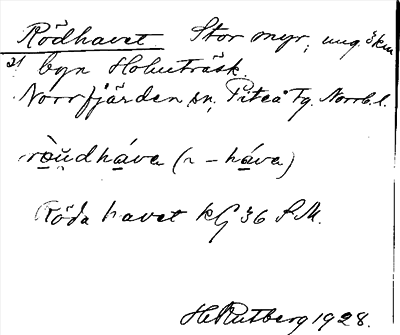 Rödhavet Stor myr, ung. 3 km
byn Holmträsk.
Norrfjärden sn, Piteå Tg. Norrb. l.
ròu̯dháva (~ – háva)
Röda havet kG 36 S.M.
H Rutberg 1928.